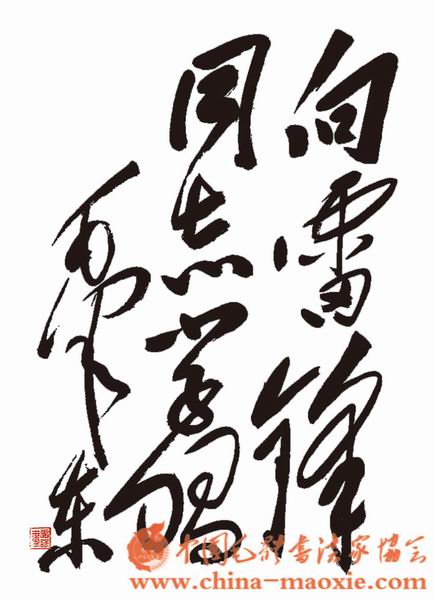 向雷锋
同志学习
毛泽东
中国毛体书法家协会
www.china-maoxie.com